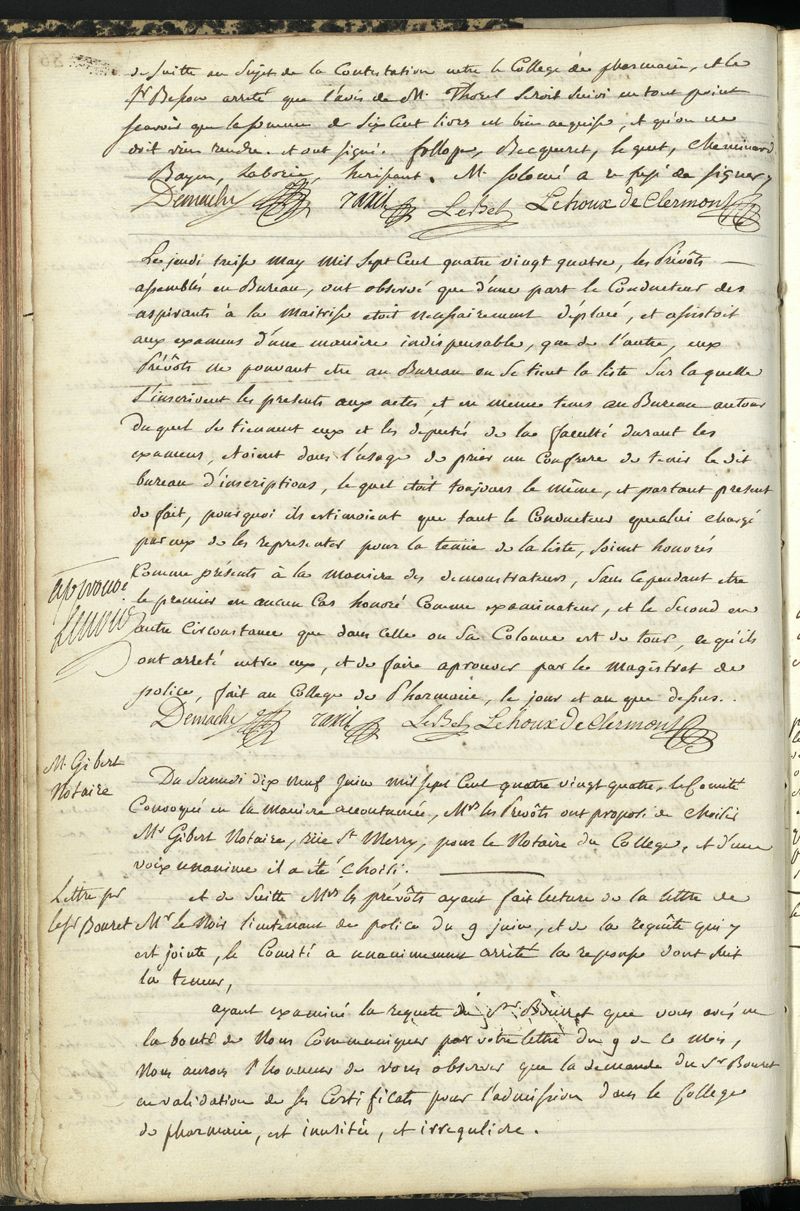 de suitte au sujet de la Contestation entre le College de pharmacie, et le
Sr Besson arreté que l'avis de Mr. Thorel seroit suivi en tout point
scavoir que la somme de six Cent livres est bien acquise, et qu'on ne
doit rien rendre. et ont signé. follope, Becqueret, le guet, Cheminard
Bayen, Laborie, herissant. Mr solomé a refusé de signer
Demachy Tassil LeBel Lehoux de Clermont
Le jeudi treize may Mil Sept Cent quatre vingt quatre, les Prévôts
assemblés en Bureau, ont observé que d'une part le Conducteur des
aspirants à la Maitrise etoit necessairement déplacé, et assistoit
aux examens d'une maniere indispensable, que de l'autre, eux
Prévôts ne pouvant etre au Bureau ou se tient la liste sur laquelle
s'inscrivent les presents aux actes, et en meme tems au Bureau autour
duquel se tiennent eux et les deputés de la faculté durant les
examens, etoient dans l'usage de prier un Confrere de tenir le dit
bureau d'inscriptions, lequel etoit toujours le même, et partant present
de fait, pourquoi ils estimoient que tant le Conducteur que celui chargé
par eux de les representer pour la tenüe de la liste, soient honorés
Comme présents à la maniere des demonstrateurs, sans cependant etre
le premier en aucun Cas honoré Comme examinateur, et le second en
autre Circonstance que dans celle ou sa Colonne est de tour, ce qu'ils
ont arreté entre eux, et de faire aprouver par le Magistrat de
police, fait au College de Pharmacie, le jour et an que dessus.
aprouvé
Lenoir
Demachy Tassil LeBel Lehoux de Clermont
Mr. Gibert
Notaire
Du samedi dix neuf juin Mil sept Cent quatre vingt quatre, le Comité
Convoqué en la Maniere accoutumée, Mrs les Prévôts ont proposé de Choisir
Mr Gibert Notaire, rüe St Merry, pour le Notaire du College, et d'une
voix unanime il a été Choisi.
Lettre pr
le Sr Bouret
et de suitte Mrs les prévôts ayant fait lecture de la lettre de
Mr le Noir lieutenant de police du 9 juin, et de la requête qui y
est jointe, le Comité a unanimement arrêté la reponse dont suit
la teneur,
ayant examiné la requete du Sr Bouret que vous avés eu
la bonté de Nous Communiquer par votre lettre du 9 de ce mois,
Nous aurons l'honneur de vous observer que la demande du Sr Bouret
en validation de ses Certificats pour l'admission dans le College
de pharmacie, est inusitée, et irreguliere.